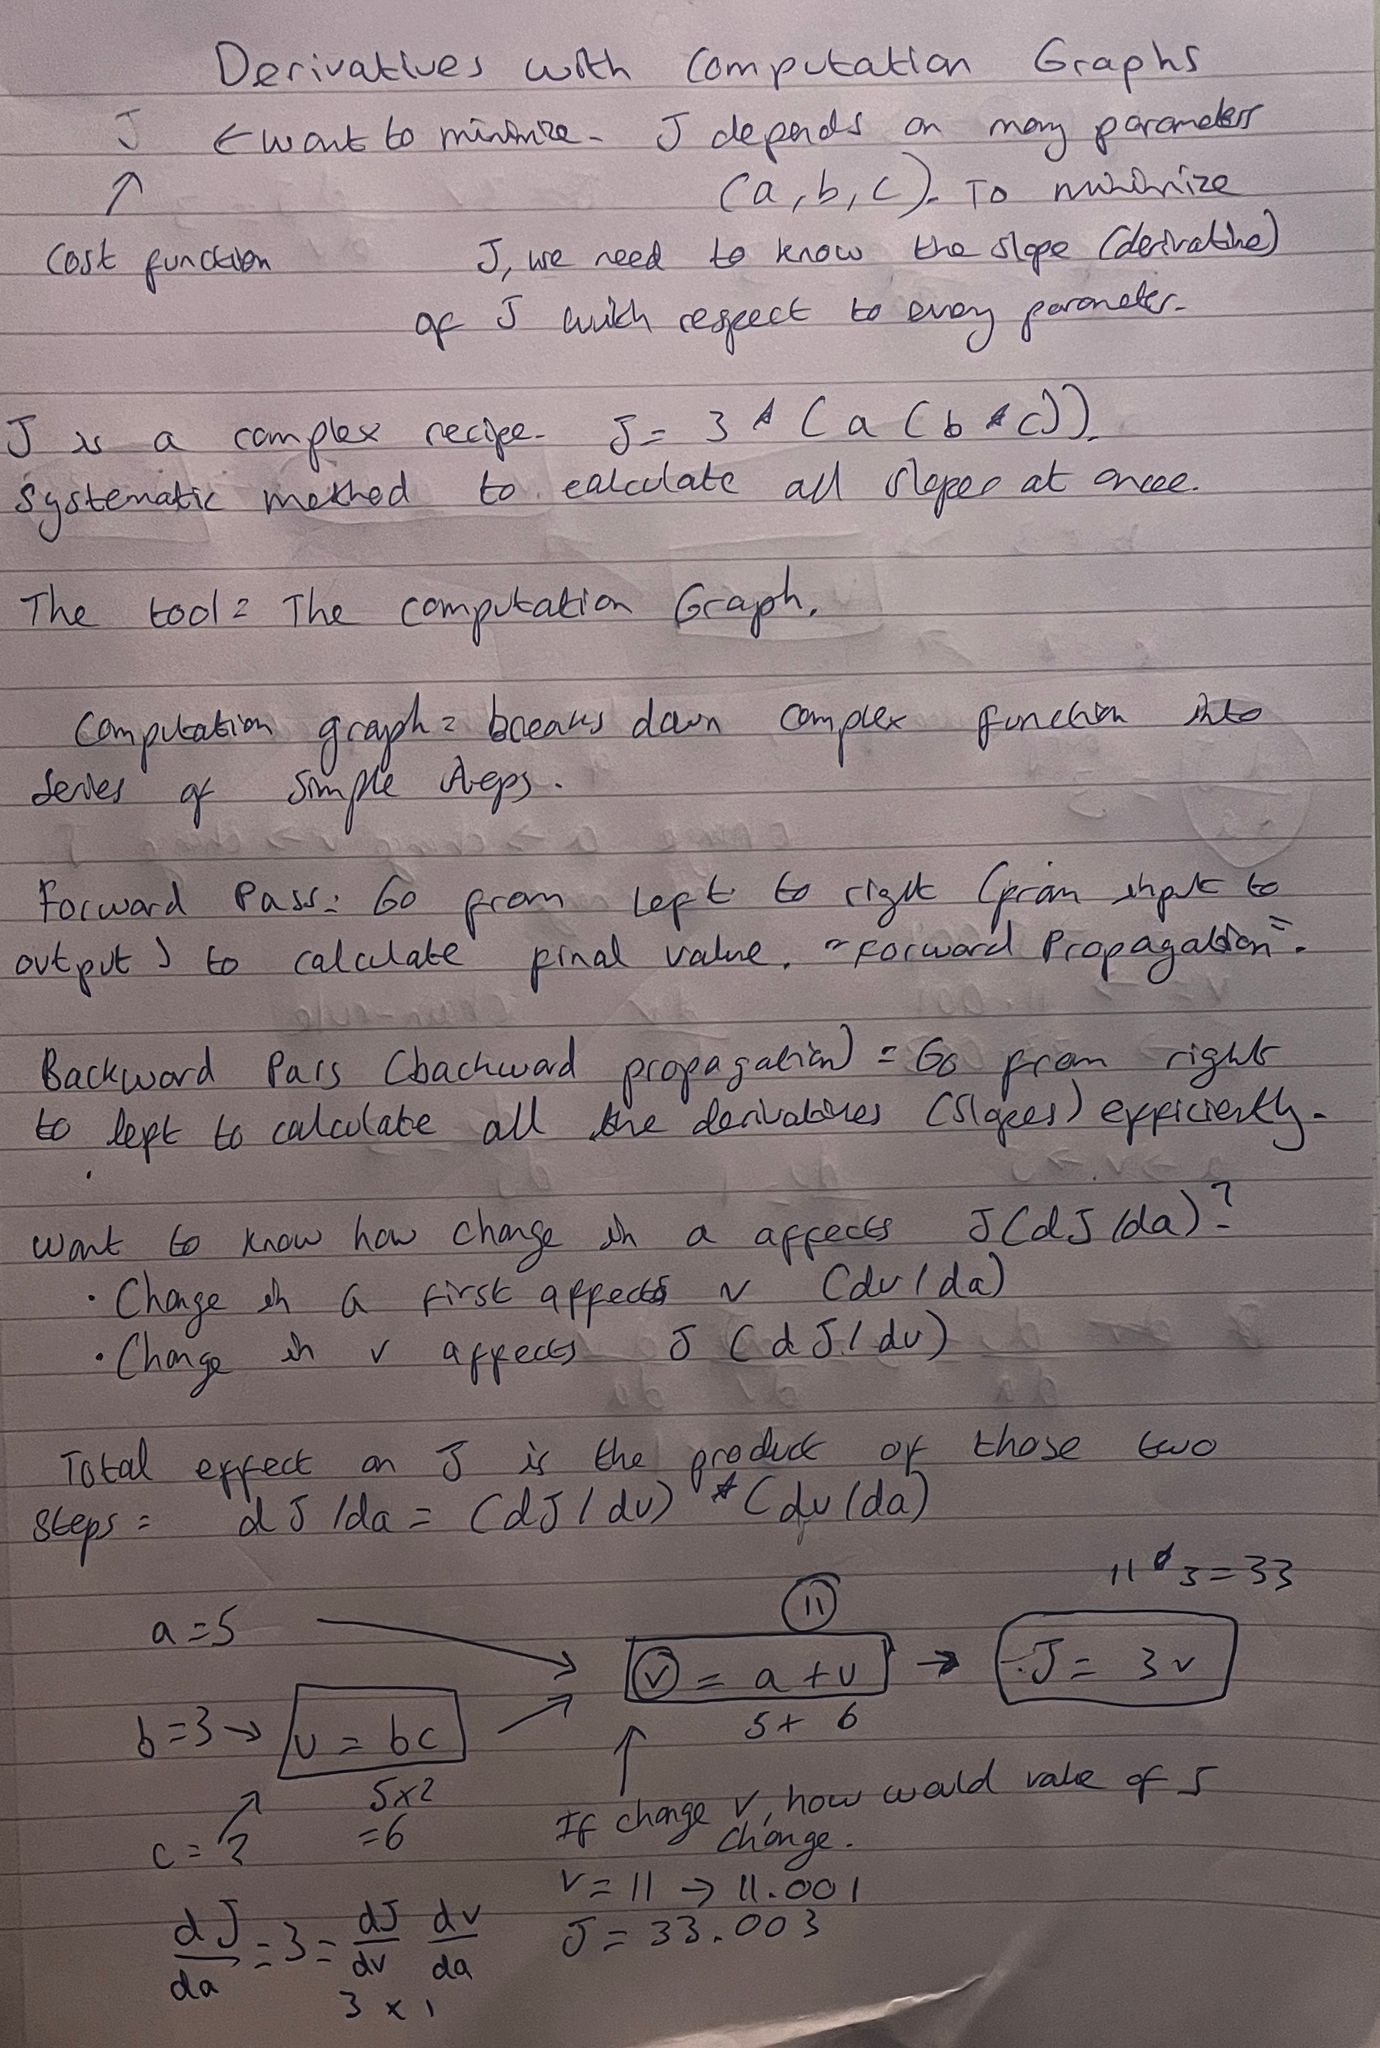 Derivatives with Computation Graphs
J ← want to minimize. J depends on many parameters
↑ (a, b, c). To minimize
Cost function J, we need to know the slope (derivative)
of J with respect to every parameter.
J is a complex recipe. J = 3 * (a (b * c)).
Systematic method to calculate all slopes at once.
The tool = The computation Graph.
Computation graph = breaks down complex function into
series of simple steps.
Forward Pass: Go from left to right (from input to
output) to calculate final value. "Forward Propagation".
Backward Pass (backward propagation) = Go from right
to left to calculate all the derivatives (slopes) efficiently.
Want to know how change in a affects J (dJ/da)?
• Change in a first affects v (dv/da)
• Change in v affects J (dJ/dv)
Total effect on J is the product of those two
steps = dJ/da = (dJ/dv) * (dv/da)
11 * 3 = 33
11
a = 5
v = a + u → J = 3v
b = 3 → u = bc
5 + 6
5 x 2
= 6
c = 2
If change v, how would value of J
change.
v = 11 → 11.001
J = 33.003
dJ/da = 3 = dJ/dv dv/da
3 x 1